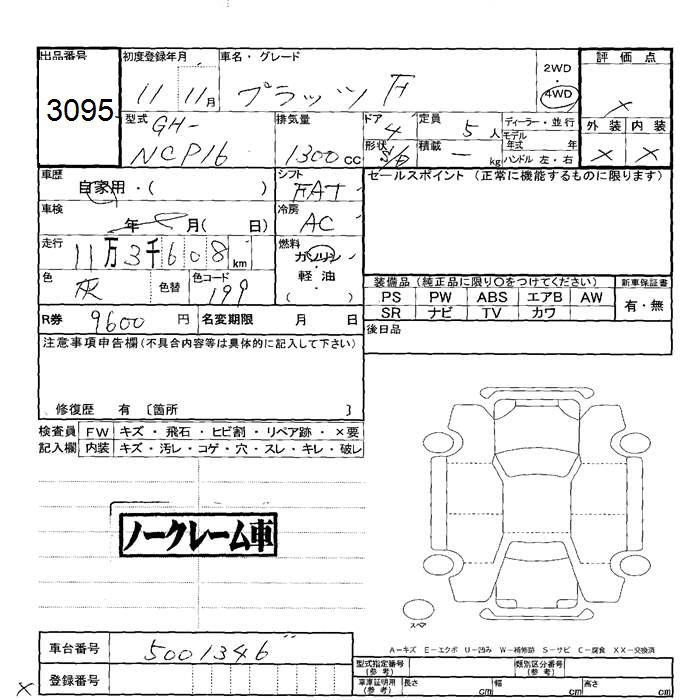 出品番号 初度登録年月 車名・グレード 評価点
3095 11 11月 プラッツ F 2WD ・ 4WD ×
型式 排気量 ドア 定員 ディーラー・並行 外装 内装
GH-NCP16 1300cc 4 5人 モデル年式 年 × ×
形状 S/D 積載 — kg ハンドル 左・右
車歴 シフト セールスポイント(正常に機能するものに限ります)
自家用・( ) FAT
車検 冷房
年 月( 日) AC
走行 燃料
11万3千608km ガソリン
色 色替 色コード 軽油
灰 199 ( )
装備品(純正品に限り○をつけてください) 新車保証書
PS PW ABS エアB AW 有・無
SR ナビ TV カワ
R券 9600円 名変期限 月 日
後日品
注意事項申告欄(不具合内容等は具体的に記入して下さい)
修復歴 有 〔箇所 〕
検査員 FW キズ・飛石・ヒビ割・リペア跡・×要
記入欄 内装 キズ・汚レ・コゲ・穴・スレ・キレ・破レ
ノークレーム車
スペア
車台番号 5001346
A-キズ E-エクボ U-凹み W-補修跡 S-サビ C-腐食 XX-交換済
型式指定番号(参考) 類別区分番号(参考)
登録番号
車庫証明用(参考) 長さ cm 幅 cm 高さ cm
×